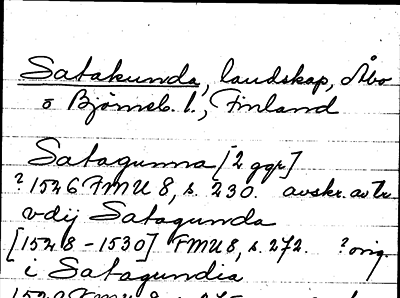 Satakunda, landskap, Åbo
o Björneb. l., Finland
Satagunna [2 ggr]
? 1526 FMU 8, s. 230. avskr. av Tr.
vdij Satagunda
[1528-1530] FMU 8, s. 272. ? orig.
i Satagundia